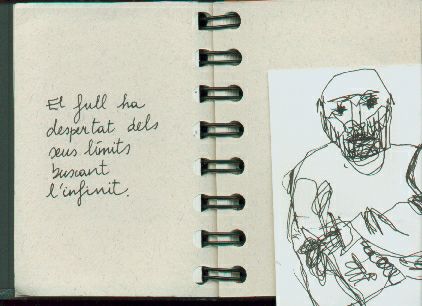 El full ha
despertat dels
seus límits
buscant
l'infinit.